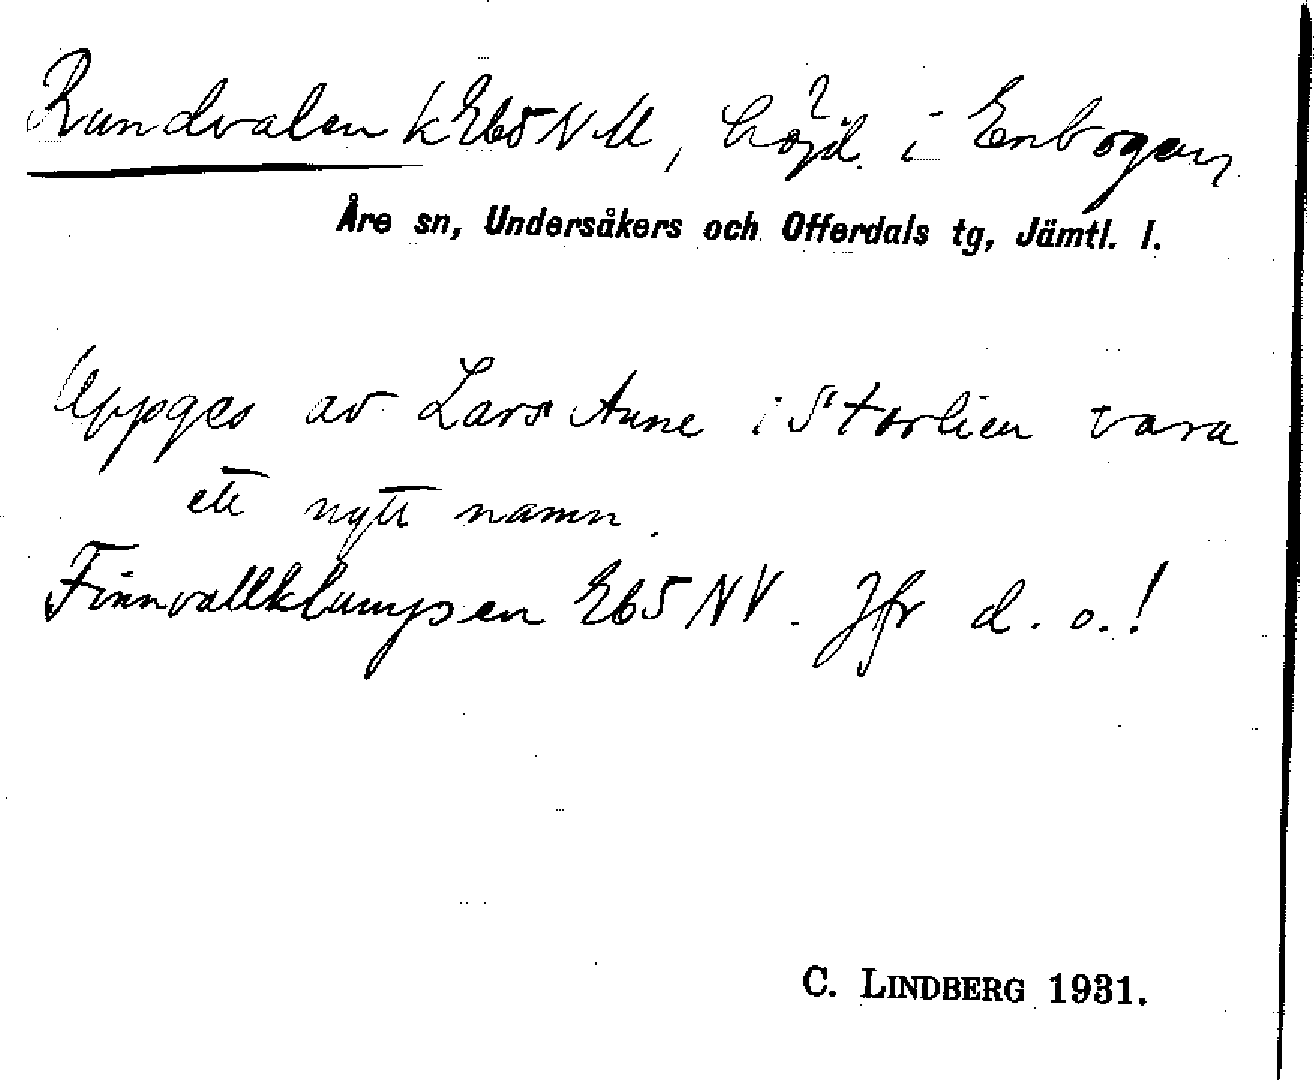 Rundvalen k Eb5NM, höjd? i Enbogen
Åre sn, Undersåkers och Offerdals tg, Jämtl. l.
Uppges av Lars Aune i Storlien vara
ett nytt namn.
Finnvallklumpen Eb5 NV. Jfr d. o.!
C. LINDBERG 1931.